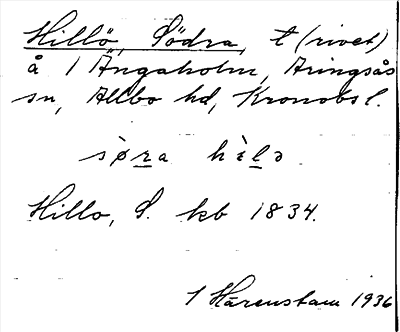 Hillö, Södra, t (rivet)
å 1 Ängaholm, Aringsås
sn, Allbo hd, Kronobs l.
sø̀ra hìlə.
Hillo, S. kb 1834.
1 Härenstam 1936